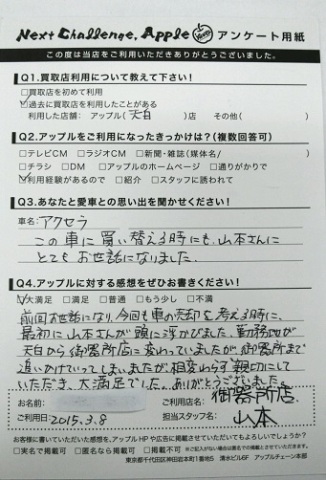 Next Challenge, Apple アンケート用紙
この度は当店をご利用いただきありがとうございました。
Q1.買取店利用について教えて下さい!
□買取店を初めて利用
☑過去に買取店を利用したことがある
利用した店舗: アップル( 天白 )店 その他( )
Q2.アップルをご利用になったきっかけは?(複数回答可)
□テレビCM □ラジオCM □新聞・雑誌(媒体名/ )
□チラシ □DM □アップルのホームページ □通りがかりで
☑利用経験があるので □紹介 □スタッフに誘われて
Q3.あなたと愛車との思い出を聞かせください!
車名: アクセラ
この車に買い替える時にも、山本さんに
とてもお世話になりました。
Q4.アップルに対する感想をぜひお書きください!
☑大満足 □満足 □普通 □もう少し □不満
前回お世話になり、今回も車の売却を考える時に、
最初に山本さんが頭に浮かびました。勤務地が
天白から御器所店に変わっていましたが、御器所まで
追いかけていってしまいましたが、相変わらず親切にして
いただき、大満足でした。ありがとうございました。
お名前: ご利用店名: 御器所店
ご利用日: 2015.3.8 担当スタッフ名: 山本
お客様に書いていただいた感想を、アップルHPや広告に掲載させていただいてもよろしいでしょうか?
□実名で掲載可 □匿名なら掲載可 □掲載不可
東京都千代田区神田岩本町1番地5 清水ビル6F アップルチェーン本部